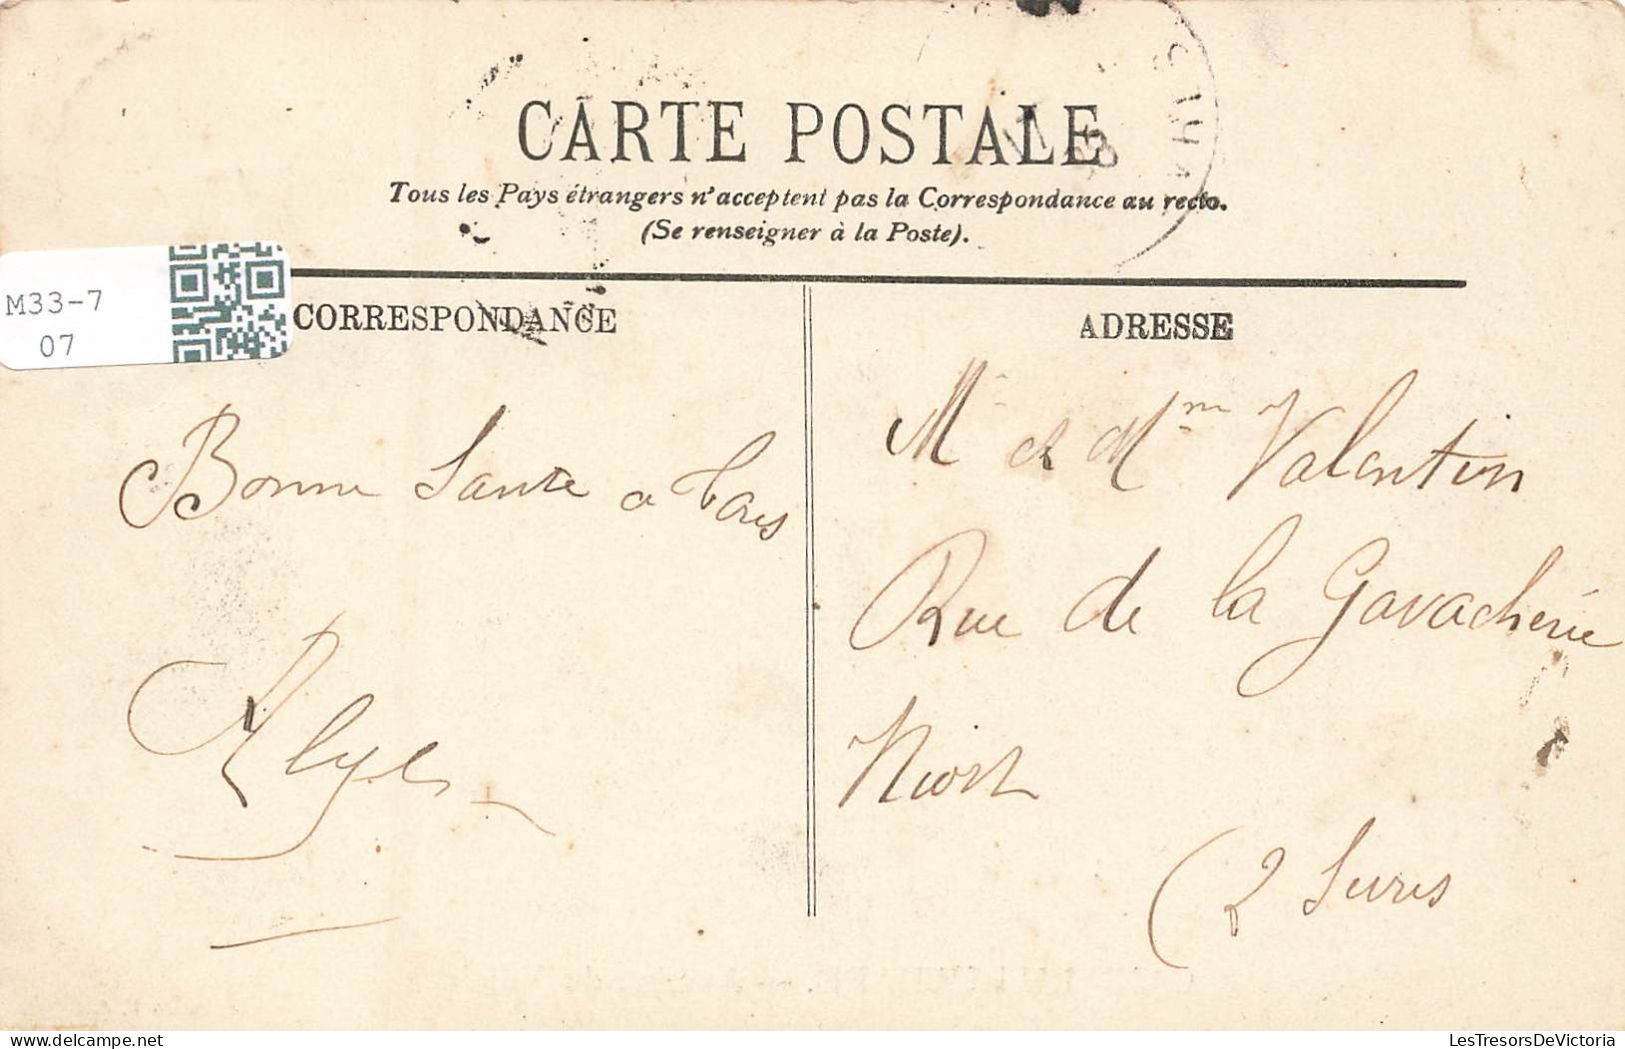 CARTE POSTALE
Tous les Pays étrangers n'acceptent pas la Correspondance au recto.
(Se renseigner à la Poste).
M33-7
07
CORRESPONDANCE
ADRESSE
Bonne Sante a Tous
Mr et Mme Valentin
Rue de la Gavacherie
Niort
(2 Sevres
LesTresorsDeVictoria
delcampe.net